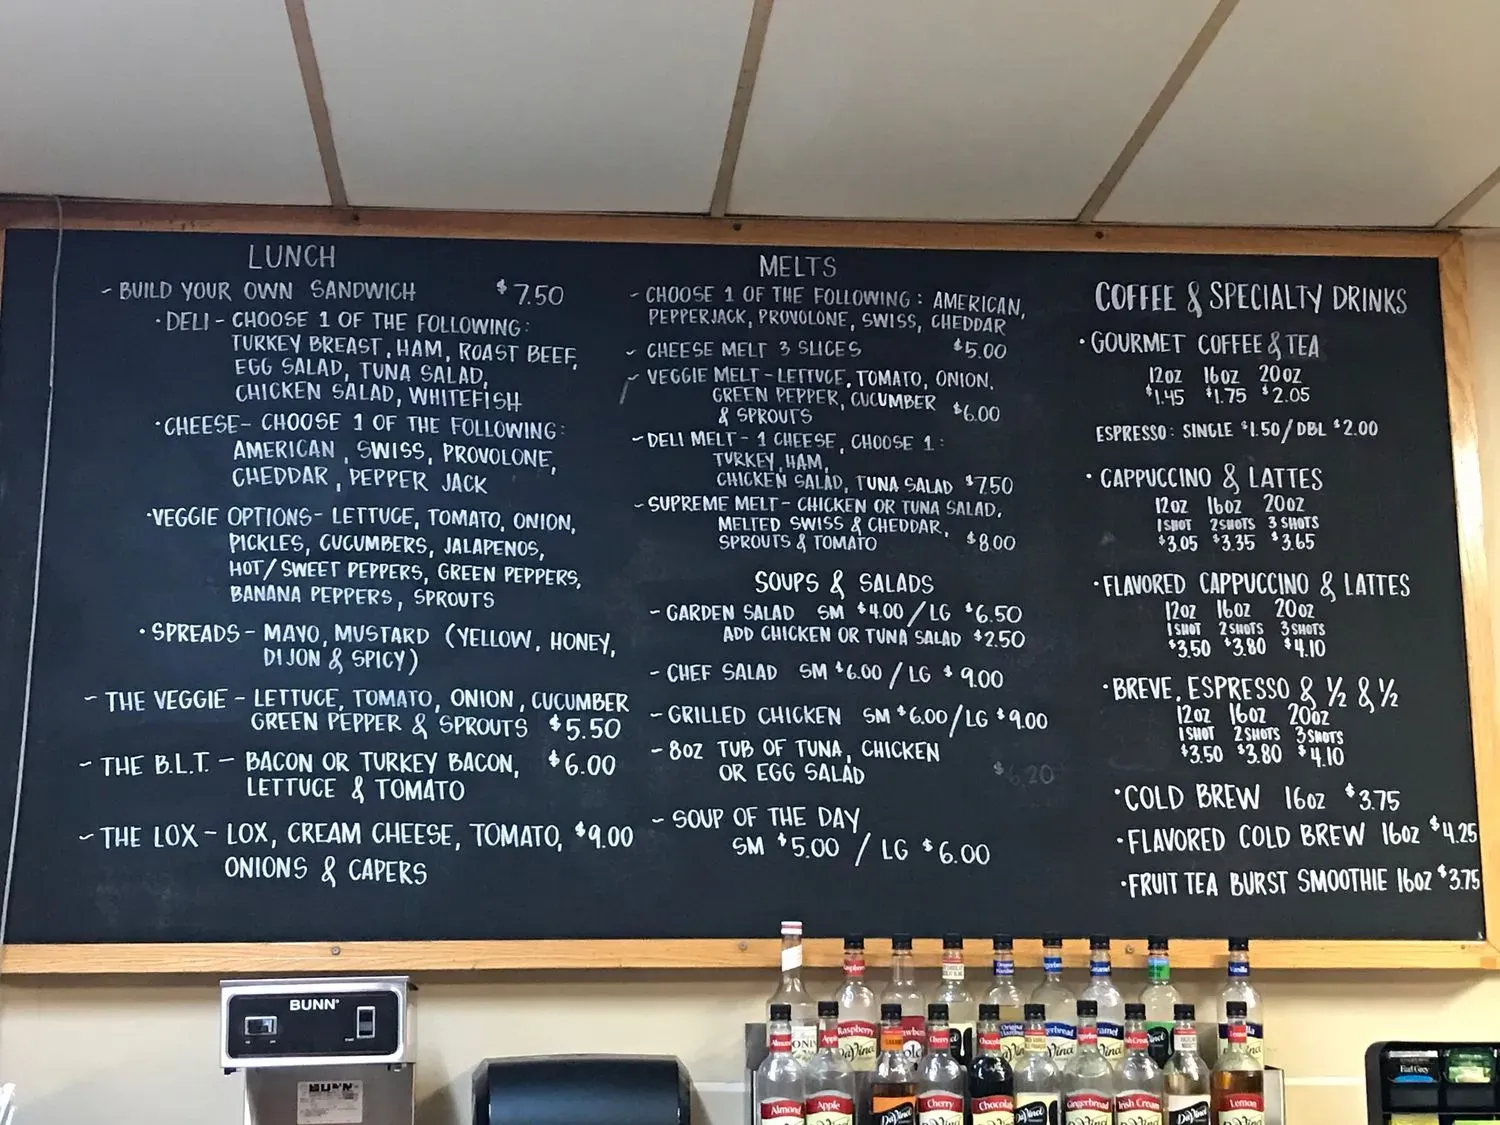 LUNCH
~ BUILD YOUR OWN SANDWICH $7.50
· DELI - CHOOSE 1 OF THE FOLLOWING:
TURKEY BREAST, HAM, ROAST BEEF,
EGG SALAD, TUNA SALAD,
CHICKEN SALAD, WHITEFISH
· CHEESE - CHOOSE 1 OF THE FOLLOWING:
AMERICAN, SWISS, PROVOLONE,
CHEDDAR, PEPPER JACK
· VEGGIE OPTIONS - LETTUCE, TOMATO, ONION,
PICKLES, CUCUMBERS, JALAPENOS,
HOT/SWEET PEPPERS, GREEN PEPPERS,
BANANA PEPPERS, SPROUTS
· SPREADS - MAYO, MUSTARD (YELLOW, HONEY,
DIJON & SPICY)
~ THE VEGGIE - LETTUCE, TOMATO, ONION, CUCUMBER
GREEN PEPPER & SPROUTS $5.50
~ THE B.L.T. - BACON OR TURKEY BACON, $6.00
LETTUCE & TOMATO
~ THE LOX - LOX, CREAM CHEESE, TOMATO, $9.00
ONIONS & CAPERS
MELTS
~ CHOOSE 1 OF THE FOLLOWING: AMERICAN,
PEPPERJACK, PROVOLONE, SWISS, CHEDDAR
~ CHEESE MELT 3 SLICES $5.00
~ VEGGIE MELT - LETTUCE, TOMATO, ONION,
GREEN PEPPER, CUCUMBER
& SPROUTS $6.00
~ DELI MELT - 1 CHEESE, CHOOSE 1:
TURKEY, HAM,
CHICKEN SALAD, TUNA SALAD $7.50
~ SUPREME MELT - CHICKEN OR TUNA SALAD,
MELTED SWISS & CHEDDAR,
SPROUTS & TOMATO $8.00
SOUPS & SALADS
~ GARDEN SALAD SM $4.00 / LG $6.50
ADD CHICKEN OR TUNA SALAD $2.50
~ CHEF SALAD SM $6.00 / LG $9.00
~ GRILLED CHICKEN SM $6.00 / LG $9.00
~ 8OZ TUB OF TUNA, CHICKEN
OR EGG SALAD $6.20
~ SOUP OF THE DAY
SM $5.00 / LG $6.00
COFFEE & SPECIALTY DRINKS
· GOURMET COFFEE & TEA
12OZ 16OZ 20OZ
$1.45 $1.75 $2.05
ESPRESSO: SINGLE $1.50 / DBL $2.00
· CAPPUCCINO & LATTES
12OZ 16OZ 20OZ
1 SHOT 2 SHOTS 3 SHOTS
$3.05 $3.35 $3.65
· FLAVORED CAPPUCCINO & LATTES
12OZ 16OZ 20OZ
1 SHOT 2 SHOTS 3 SHOTS
$3.50 $3.80 $4.10
· BREVE, ESPRESSO & ½ & ½
12OZ 16OZ 20OZ
1 SHOT 2 SHOTS 3 SHOTS
$3.50 $3.80 $4.10
· COLD BREW 16OZ $3.75
· FLAVORED COLD BREW 16OZ $4.25
· FRUIT TEA BURST SMOOTHIE 16OZ $3.75
BUNN
BUNN
Raspberry
Vanilla
Raspberry
Cherry
DaVinci
Almond
Apple
DaVinci
Cherry
DaVinci
Gingerbread
Irish Cream
DaVinci
Lemon
Earl Grey